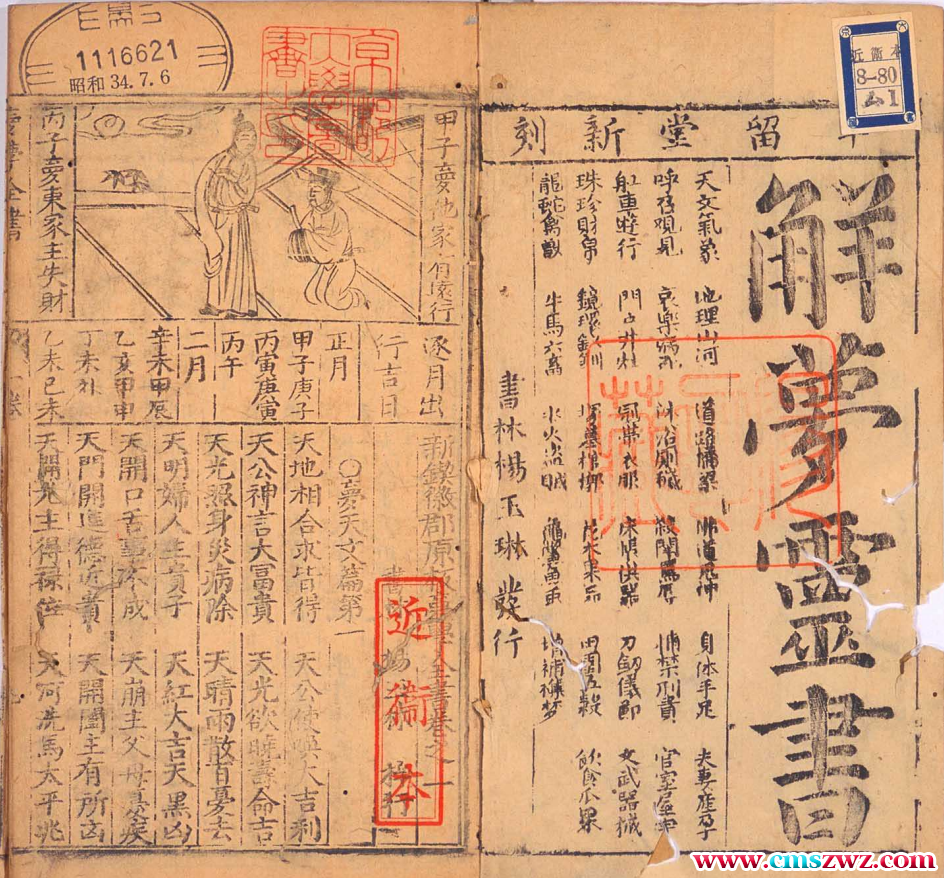 留堂新刻
解夢靈書
天文氣象 地理山河 道路橋梁 佛道鬼神 身体手足 夫妻產孕
呼召現見 哀樂病死 沐浴厠穢 捕禁刑責 宮室屋宇
舡車遊行 門户井灶 冠帶衣服 床帳供器 刀劔儀節 文武器械
珠珍財帛 鏡環釵釧 塚墓棺槨 花木果品 田園五穀 飲食瓜果
龍蛇禽獸 牛馬六畜 水火盜賊 龜鱉魚虫 增補禳梦
書林楊玉琳發行
近衛本
8-80
ム1
1116621
昭和34.7.6
甲子夢他家有遠行
丙子夢東家主失財
逐月出
行吉日
正月
甲子庚子
丙寅庚寅
丙午
二月
辛未甲辰
乙亥甲申
丁未
乙未己未
新鍥徽郡原板夢學全書卷之一
書林楊 梓行
○夢天文篇第一
天地相合求皆得 天公使喚大吉利
天公神言大富貴 天光欲曉壽命吉
天光照身災病除 天晴雨散百憂去
天明婦人生貴子 天紅大吉天黑凶
天開口舌事不成 天崩主父母喪疾
天門開進德近貴 天開闔主有所凶
天開光主得祿位 天河洗馬太平兆
近衛本
www.cmszwz.com